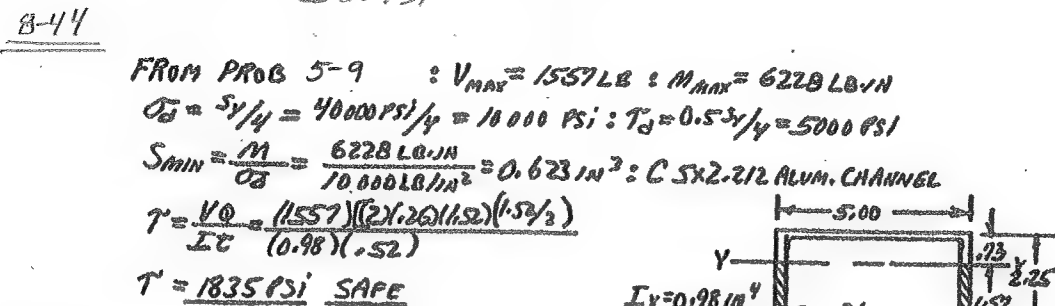 8-44
FROM PROB 5-9 : V_MAX = 1557 LB : M_MAX = 6228 LB·IN
σ_d = Sy/4 = 40000 PSI/4 = 10 000 PSI : τ_d = 0.5 Sy/4 = 5000 PSI
S_MIN = M/σ_d = 6228 LB·IN / 10 000 LB/IN² = 0.623 IN³ : C 5X2.212 ALUM. CHANNEL
τ = VQ/It = (1557)[(2)(.26)(1.52)(1.52/2) / (0.98)(.52)
τ = 1835 PSI SAFE
5.00
Y
.73
Y
2.25
1.52
I_Y = 0.98 IN⁴